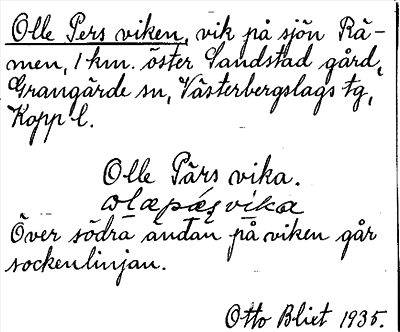 Olle Pers viken, vik på sjön Rä-
men, 1 km. öster Sandstad gård,
Grangärde sn, Västerbergslags tg,
Kopp. l.
Olle Pärs vika.
Över södra ändan på viken går
sockenlinjan.
Otto Blixt 1935.